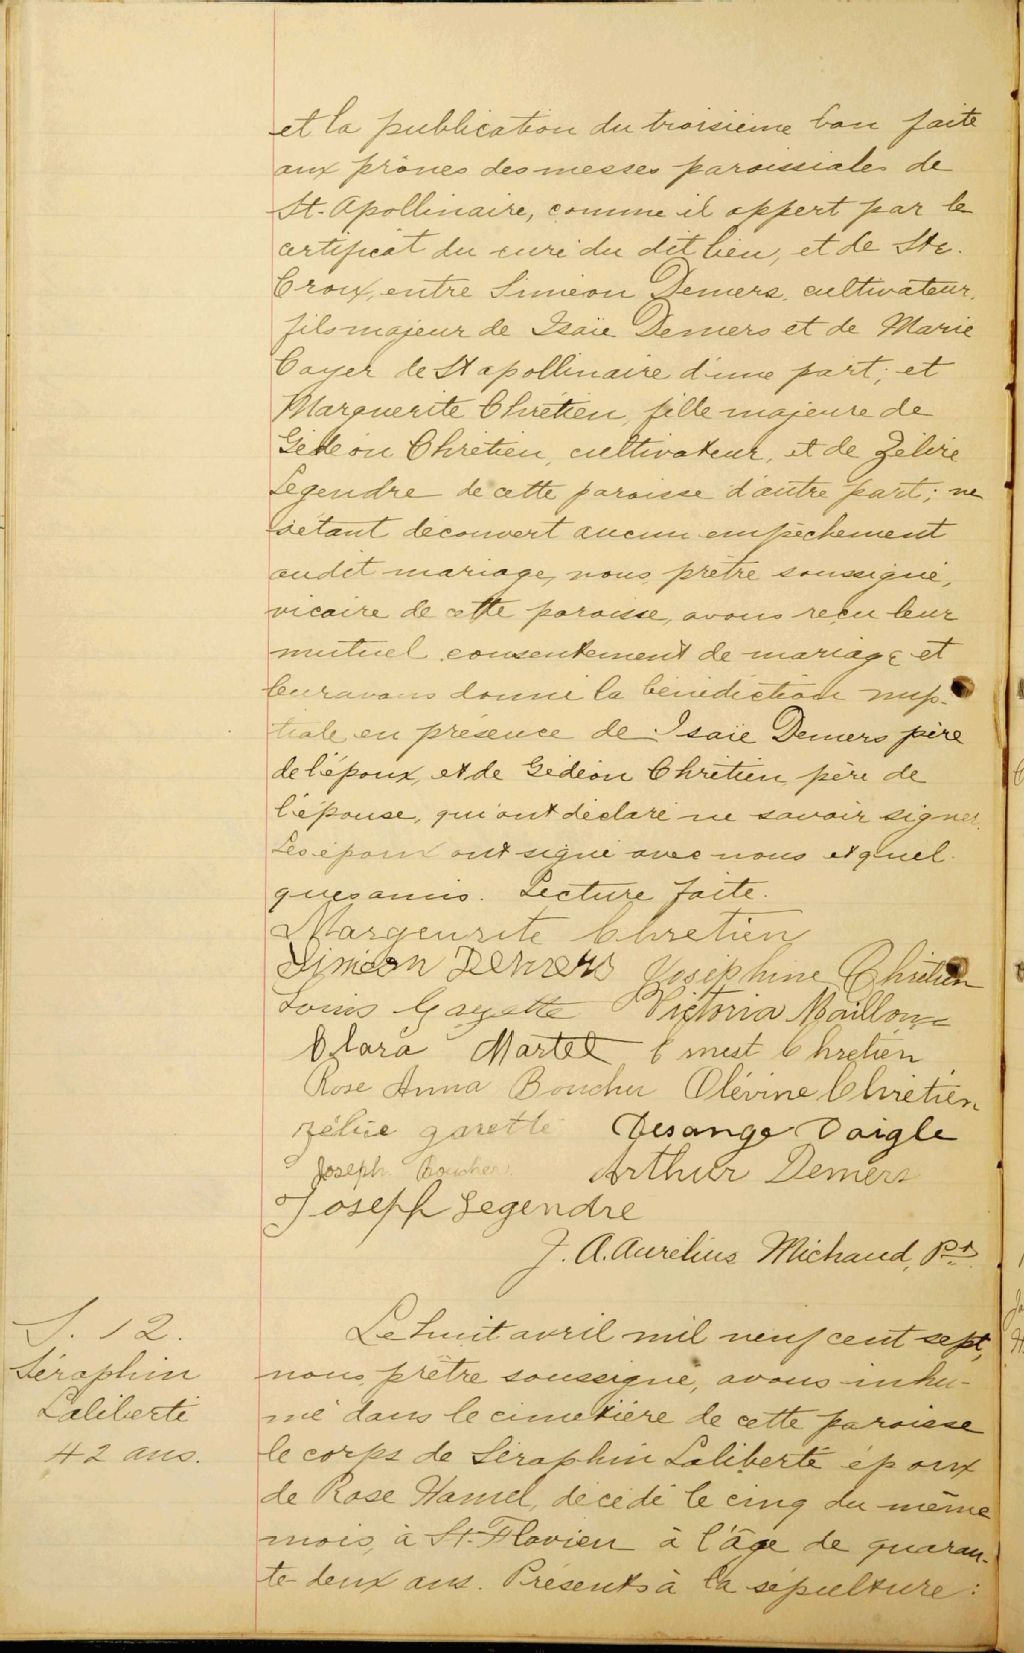 et la publication du troisième ban faite
aux prônes des messes paroissiales de
St-Apollinaire, comme il appert par le
certificat du curé du dit lieu, et de Ste.
Croix, entre Siméon Demers, cultivateur,
fils majeur de Isaïe Demers et de Marie
Cayer de St apollinaire d'une part; et
Marguerite Chrétien, fille majeure de
Gédéon Chrétien, cultivateur, et de Zélire
Legendre de cette paroisse d'autre part; ne
s'étant découvert aucun empêchement
au dit mariage, nous, prêtre soussigné,
vicaire de cette paroisse, avons reçu leur
mutuel consentement de mariage et
leur avons donné la bénédiction nup-
tiale en présence de Isaïe Demers père
de l'époux, et de Gédéon Chrétien, père de
l'épouse, qui ont déclaré ne savoir signer.
Les époux ont signé avec nous et quel-
ques amis. Lecture faite.
Margeurite Chretien
Siméon Demers Joséphine Chrétien
Louis Gayette Victoria Maillou
Clara Martel Ernest Chretien
Rose Anna Boucher Olévine Chrétien
Zélire garette Desange Daigle
Joseph Boucher Arthur Demers
Joseph Legendre
J. A. Aurélius Michaud, Pt
S. 12.
Séraphin
Laliberté
42 ans.
Le huit avril mil neuf cent sept,
nous, prêtre soussigné, avons inhu-
mé dans le cimetière de cette paroisse
le corps de Séraphin Laliberté époux
de Rose Hamel, décédé le cinq du même
mois, à St-Flavien à l'âge de quaran-
te-deux ans. Présents à la sépulture: